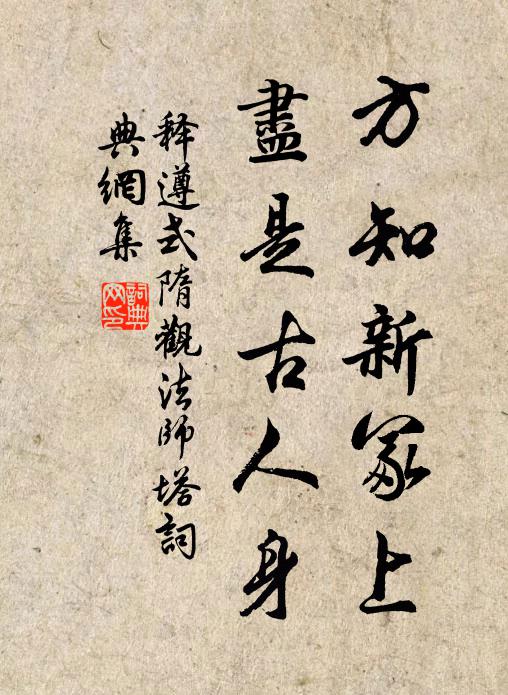 方知新冢上
盡是古人身
释遵式隋觀法師塔詞
典網集
詞典網印